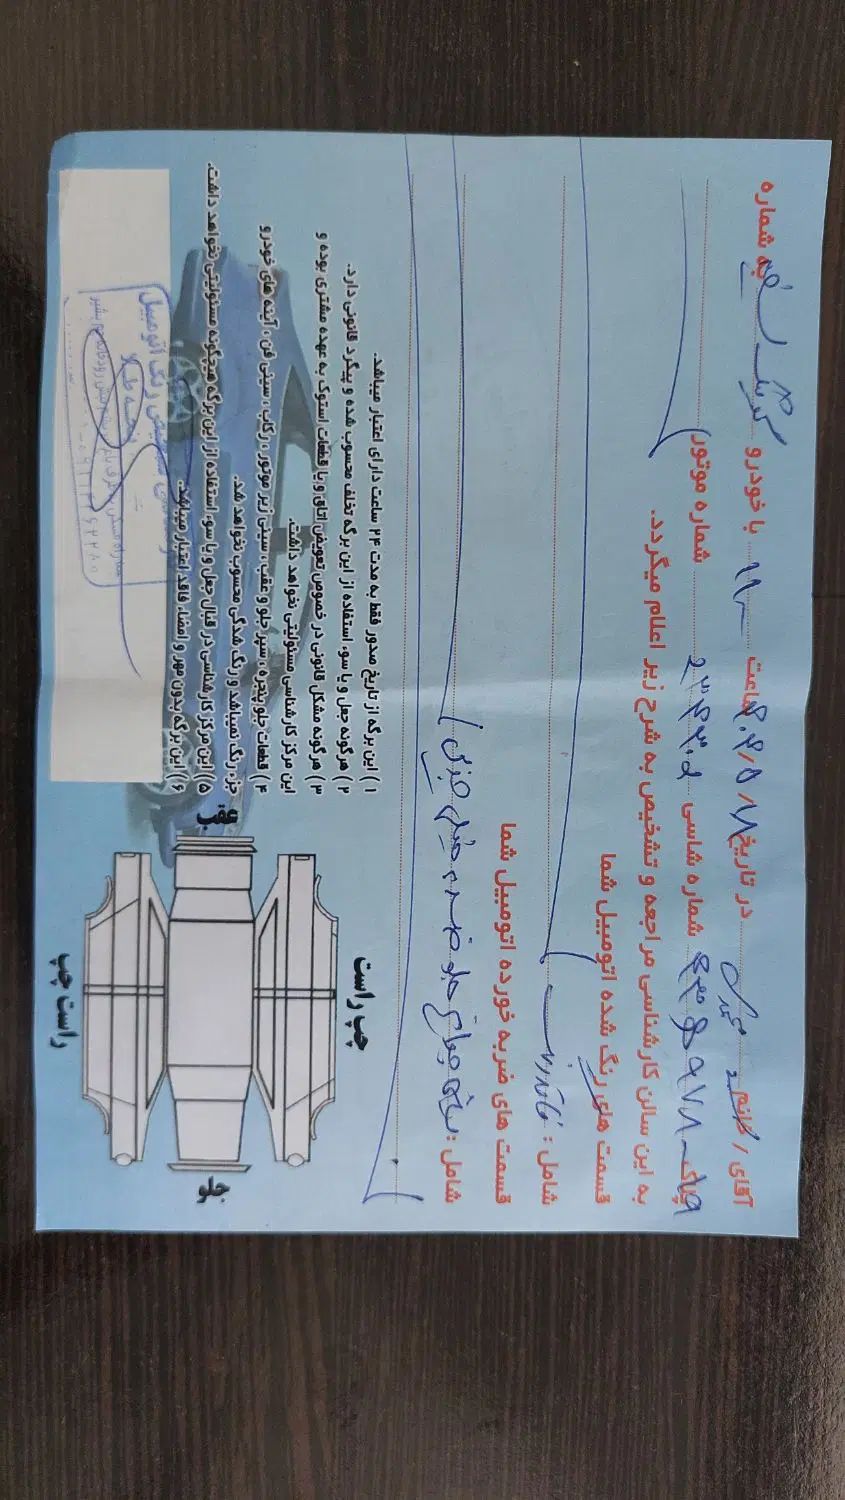 آقای / خانم در تاریخ ساعت ۱۱:۰۰ با خودرو کوییک سفید به شماره
پلاک شماره شاسی ۲۳۴۳۰۵ شماره موتور
به این سالن کارشناسی مراجعه و تشخیص به شرح زیر اعلام میگردد.
قسمت های رنگ شده اتومبیل شما
شامل : فاقد رنگ
قسمت های ضربه خورده اتومبیل شما
شامل : جلو ضربه جزئی
۱) این برگه از تاریخ صدور فقط به مدت ۲۴ ساعت دارای اعتبار میباشد.
۲) هرگونه جعل و یا سوء استفاده از این برگه تخلف محسوب شده و پیگرد قانونی دارد.
۳) هرگونه مشکل قانونی در خصوص تعویض اتاق و یا قطعات استوک به عهده مشتری بوده و
این مرکز کارشناسی مسئولیتی نخواهد داشت.
۴) قطعات جلو پنجره ، سپر جلو و عقب ، سینی زیر موتور ، رکاب ، سینی فن ، آینه های خودرو
جزء رنگ نمیباشد و رنگ شدگی محسوب نخواهد شد.
۵) این مرکز کارشناسی در قبال جعل و یا سوء استفاده از این برگه هیچگونه مسئولیتی نخواهد داشت.
۶) این برگه بدون مهر و امضاء فاقد اعتبار میباشد.
رنگ اتومبیل
چپ راست
عقب
جلو
راست چپ